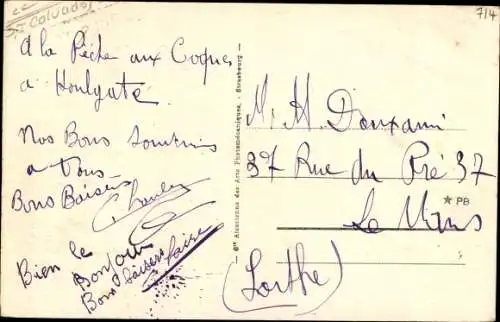 Calvados
714
A la Pêche aux Coques
a Houlgate
Nos Bons Souvenirs
a Vous
Bons Baisers
Charles
Bien le Bonjour
Bons baisers
Cie Alsacienne des Arts Photomécaniques, - Strasbourg -
M. M. Donxami
37 Rue du Pré 37
* PB
Le Mans
(Sarthe)